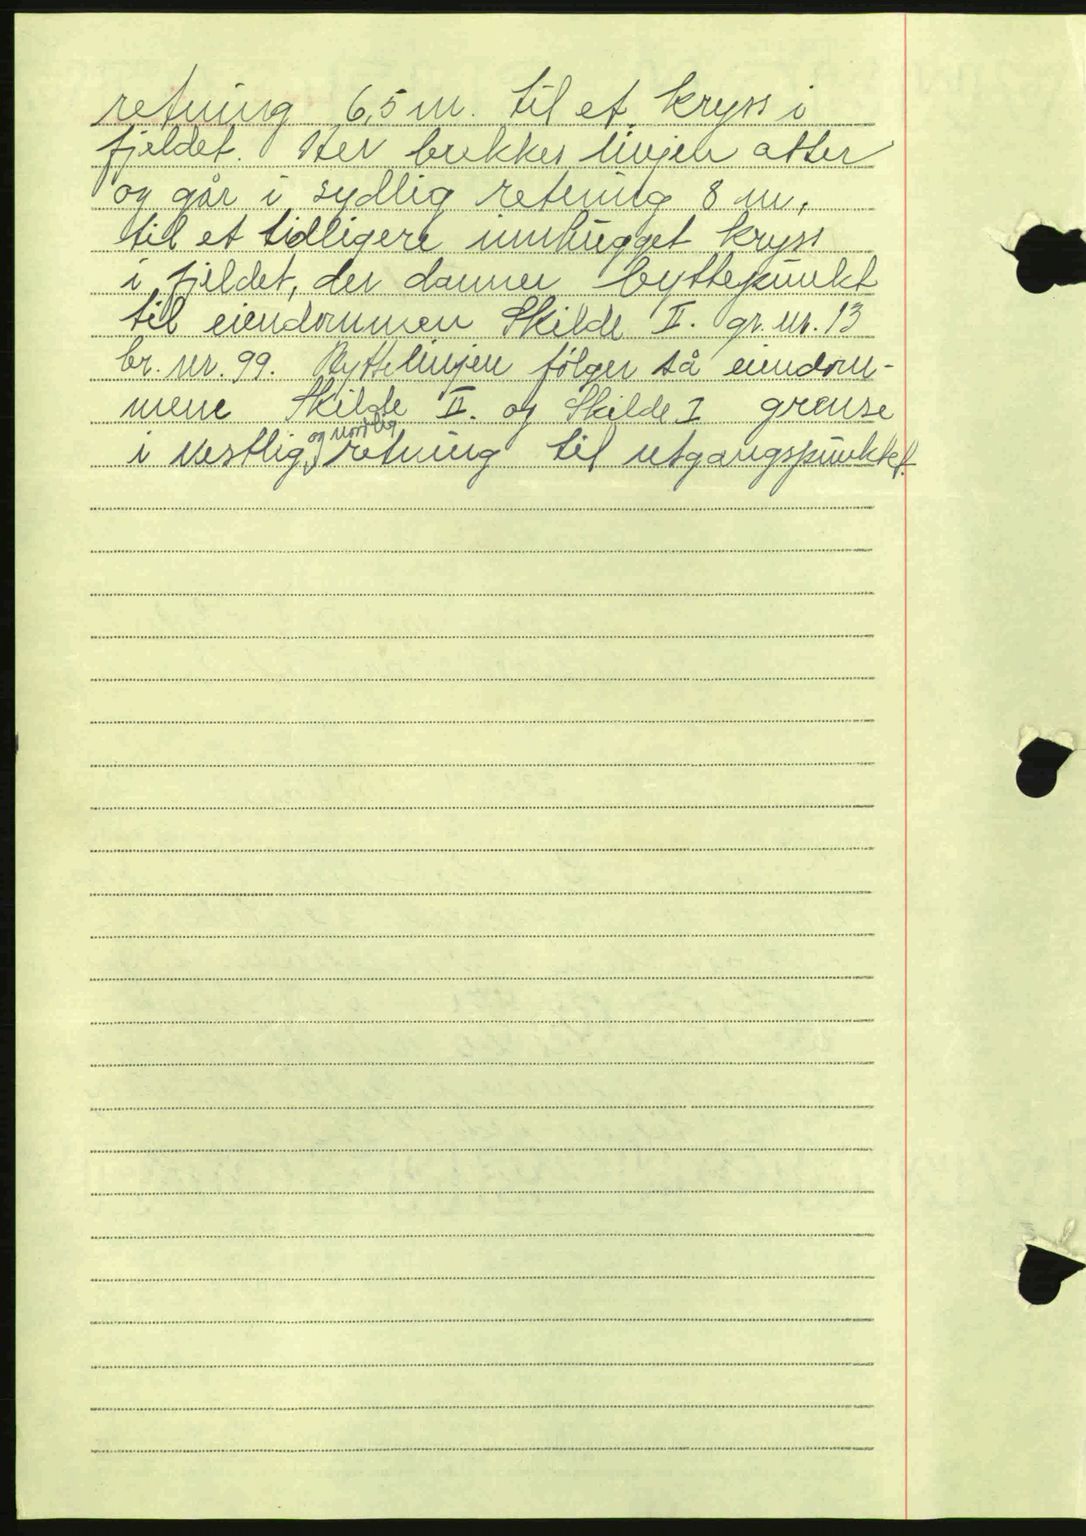 retning 6,5 m. til et kryss i
fjeldet. Her brekkes linjen atter
og går i sydlig retning 8 m,
til et tidligere innhugget kryss
i fjeldet, der danner byttepunkt
til eiendommen Skilde II. gr. nr. 13
br. nr. 99. Byttelinjen følger så eiendom-
mene Skilde II. og Skilde I grense
i vestlig og nordlig retning til utgangspunktet.